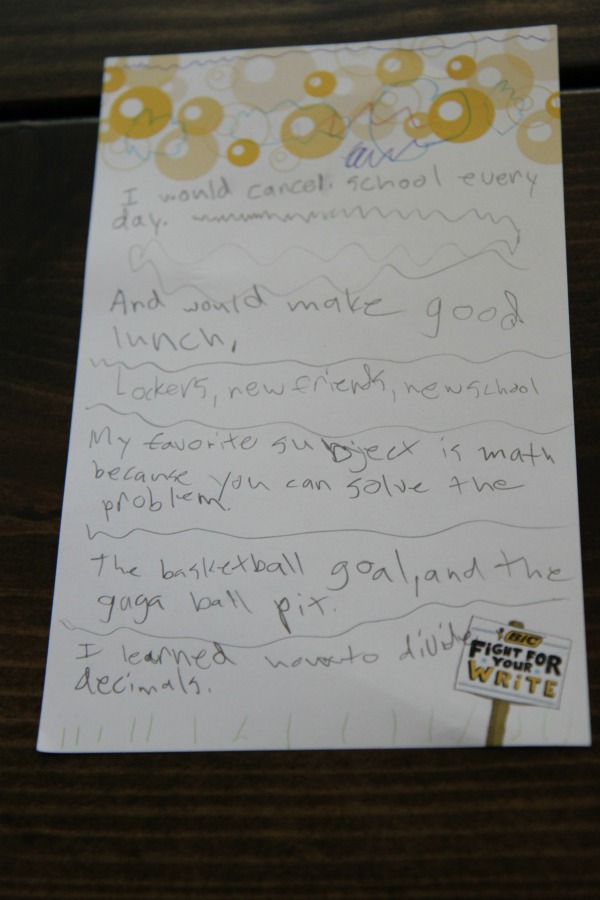 I would cancel school every
day.
And would make good
lunch,
Lockers, new friends, new school
My favorite subject is math
because you can solve the
problem.
The basketball goal, and the
gaga ball pit.
I learned to divide
decimals.
BIC
FIGHT FOR
YOUR
WRiTE